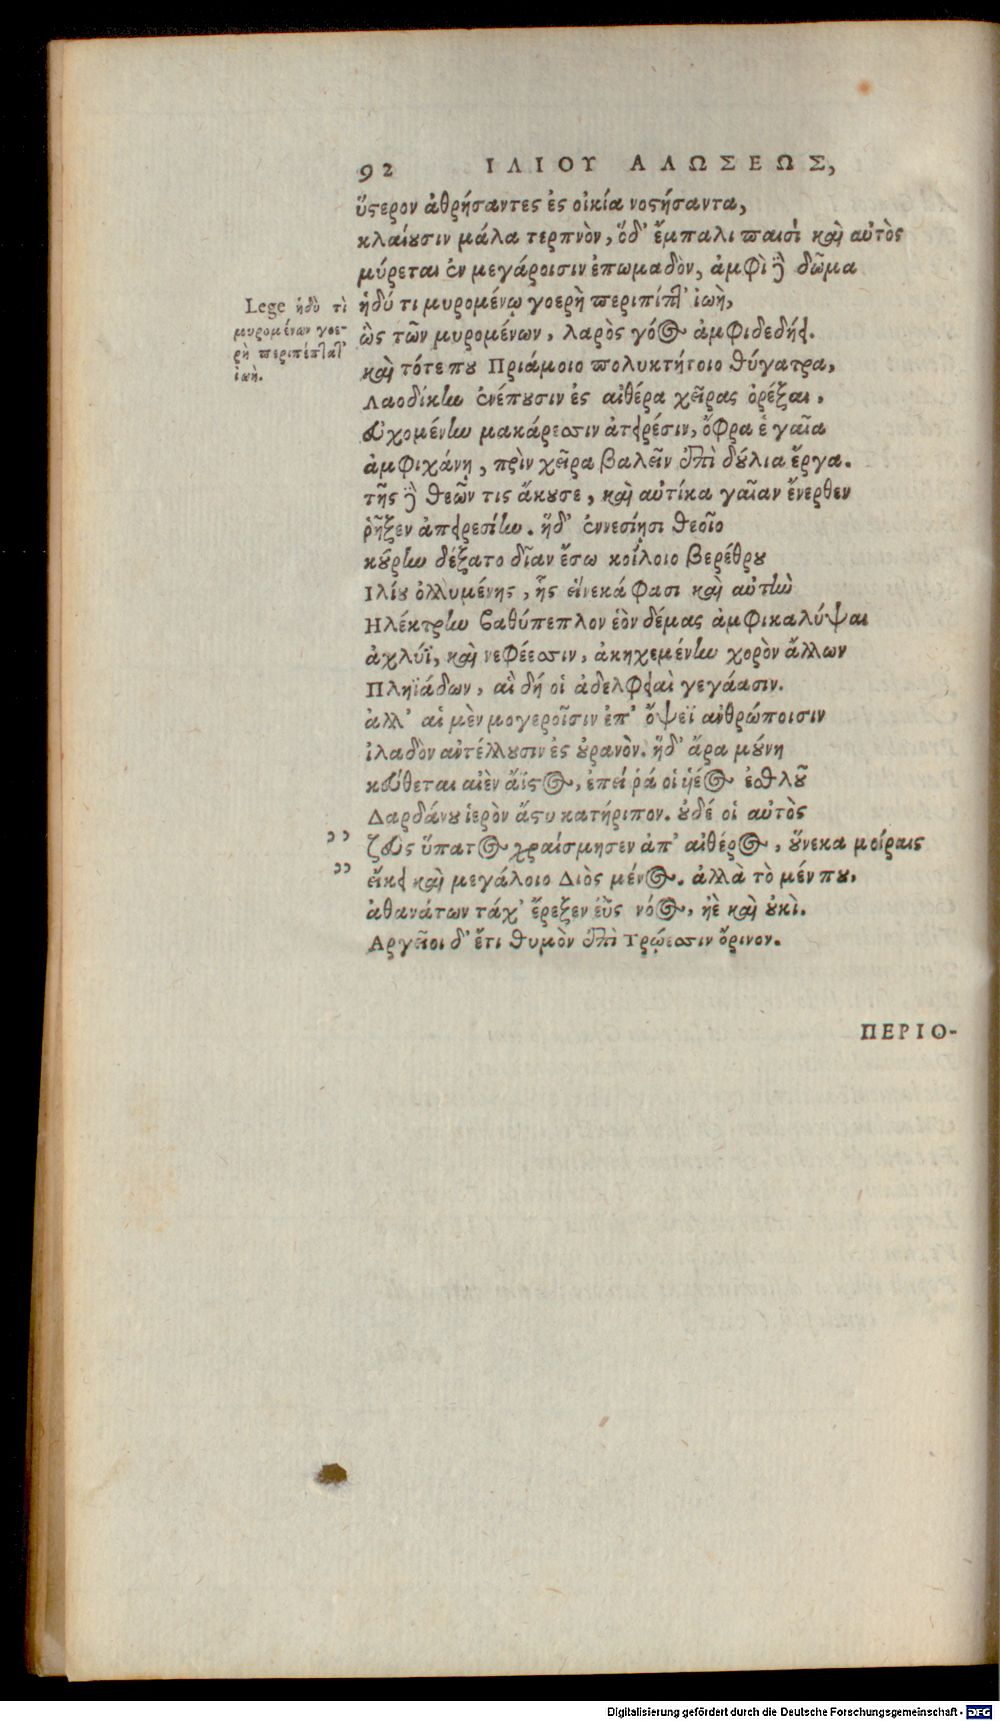 92 ΙΛΙΟΥ ΑΛΩΣΕΩΣ,
ὕστερον ἀθρήσαντες ἐς οἰκία νοστήσαντα,
κλαίουσιν μάλα τερπνὸν, ὅδ' ἔμπαλι παισὶ καὶ αὐτὸς
μύρεται ἐν μεγάροισιν ἐπωμαδὸν, ἀμφὶ δὲ δῶμα
Lege ἡδὺ τὶ
μυρομένων γοε-
ρὴ περιπέπταται
ἰωή.
ἡδύ τι μυρομένῳ γοερὴ περιπίπτατ' ἰωὴ,
ὣς τῶν μυρομένων, λαρὸς γόος ἀμφιδεδήει.
καὶ τότε που Πριάμοιο πολυκτήτοιο θύγατρα,
Λαοδίκην ἐνέπουσιν ἐς αἰθέρα χεῖρας ὀρέξαι,
εὐχομένην μακάρεσσιν ἀτειρέσιν, ὄφρα ἑ γαῖα
ἀμφιχάνῃ, πρὶν χεῖρα βαλεῖν ἐπὶ δούλια ἔργα.
τῆς δὲ θεῶν τις ἄκουσε, καὶ αὐτίκα γαῖαν ἔνερθεν
ῥῆξεν ἀπειρεσίην. ἥδ' ἐννεσίῃσι θεοῖο
κούρην δέξατο δῖαν ἔσω κοίλοιο βερέθρου
Ιλίου ὀλλυμένης, ἧς εἵνεκά φασι καὶ αὐτὴν
Ηλέκτρην βαθύπεπλον ἑὸν δέμας ἀμφικαλύψαι
ἀχλύϊ, καὶ νεφέεσσιν, ἀκηχεμένην χορὸν ἄλλων
Πληϊάδων, αἳ δή οἱ ἀδελφειαὶ γεγάασιν.
ἀλλ' αἱ μὲν μογεροῖσιν ἐπ' ὄψεϊ ἀνθρώποισιν
ἰλαδὸν ἀντέλλουσιν ἐς οὐρανὸν. ἥδ' ἄρα μούνη
κεύθεται αἰὲν ἄϊστος, ἐπεί ῥά οἱ ἱῆος ἐσθλοῦ
Δαρδάνου ἱερὸν ἄστυ κατήριπον. οὐδέ οἱ αὐτὸς
ʼʼ ζεὺς ὕπατος χραίσμησεν ἀπ' αἰθέρος, οὕνεκα μοίραις
ʼʼ εἴκει καὶ μεγάλοιο Διὸς μένος. ἀλλὰ τὸ μέν που,
ἀθανάτων τάχ' ἔρεξεν ἐῢς νόος, ἠὲ καὶ οὐκὶ.
Αργεῖοι δ' ἔτι θυμὸν ἐπὶ Τρώεσσιν ὄρινον.
ΠΕΡΙΟ-
Digitalisierung gefördert durch die Deutsche Forschungsgemeinschaft - DFG